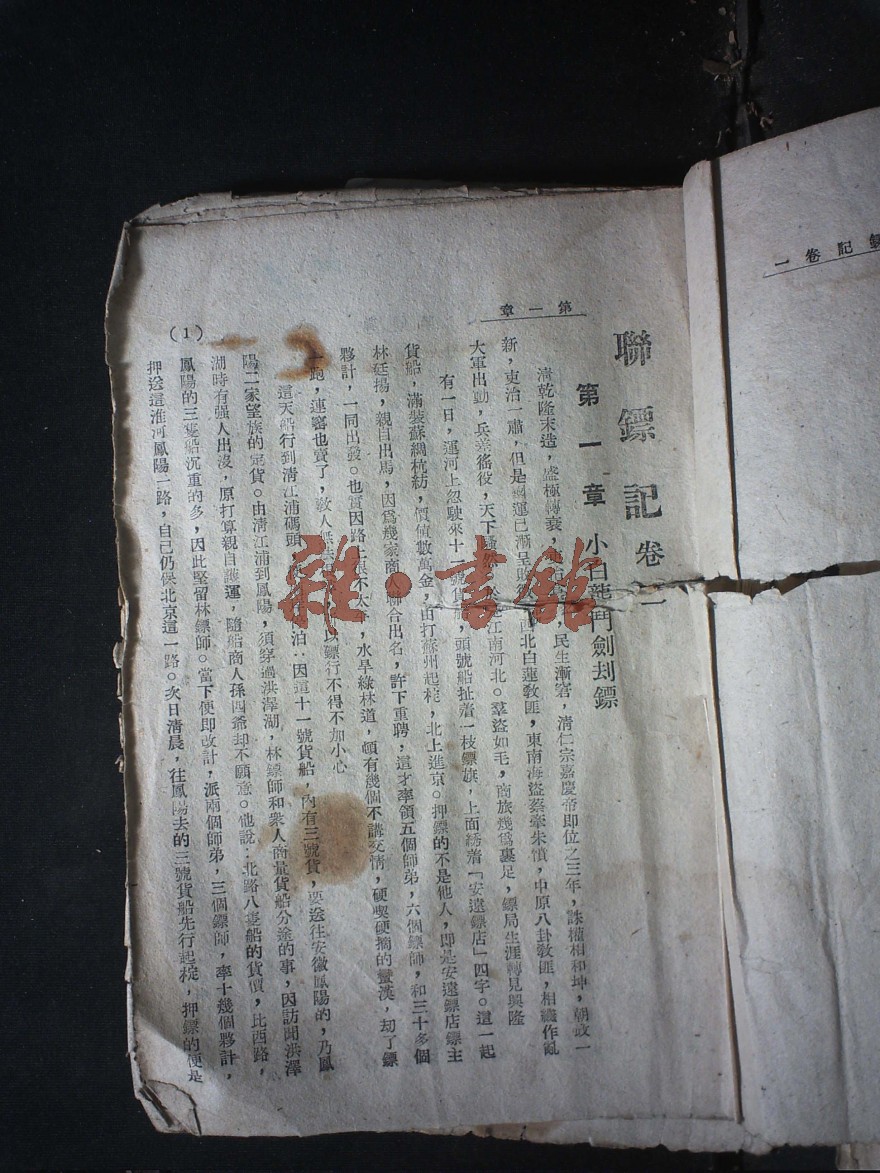 鏢記卷一
聯鏢記 卷一
第一章 小白龍鬥劍刦鏢
第一章
清乾隆末造，盛極轉衰，民生漸窘，清仁宗嘉慶帝即位之三年，誅權相和坤，朝政一
新，吏治一肅，但是運已漸呈西北白蓮教匪，東南海盜蔡牽朱濆，中原八卦教匪，相繼作亂
大軍出動，兵差徭役，天下騷江南河北。羣盜如毛，商旅幾爲裹足，鏢局生涯轉見興隆
有一日，運河上忽駛來十一號貨船，頭號船扯着一枝鏢旗，上面綉着「安遠鏢店」四字。這一起
貨船，滿裝蘇綢杭紡，價値數萬金，由打蘇州起椗，北上進京。押鏢的不是他人，即是安遠鏢店鏢主
林廷揚，親自出馬，因爲幾家商人聯合出名，許下重聘，這才率領五個師弟，六個鏢師，和三十多個
夥計，一同出發。也實因路上很不太平，水旱綠林道，頗有幾個不講交情，硬喫硬摘的蠻漢，刦了鏢
一跑，連窰也賣了，敎人無去以鏢行不得不加小心
這天船行到清江浦碼頭泊：因這十一號貨船，內有三號貨，要送往安徽鳳陽的，乃鳳
陽二家望族的定貨。由清江浦到鳳陽，須穿過洪澤湖，林鏢師和衆人商量貨船分途的事，因訪聞洪澤
湖時有强人出沒，原打算親自護運，隨船商人孫四爺却不願意。他說：北路八隻船的貨價，比西路，
鳳陽的三隻船沉重的多，因此堅留林鏢師。當下便即改計，派兩個師弟，三個鏢師，率十幾個夥計，
押送這淮河鳳陽一路，自己仍保北京這一路。次日清晨，往鳳陽去的三號貨船先行起椗，押鏢的便是
(1)
雜·書館